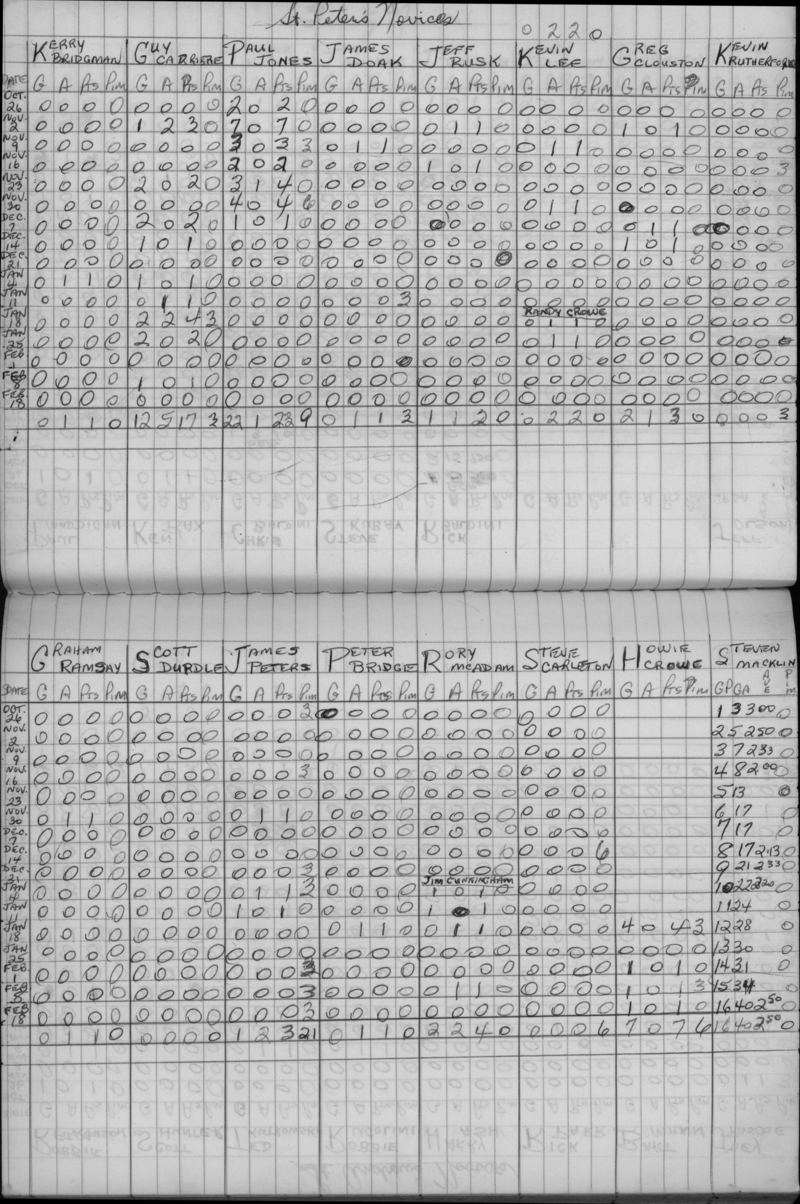 St. Peter's Novices
0 2 2 0
KERRY BRIDGMAN GUY CARRIERE PAUL JONES JAMES DOAK JEFF RUSK KEVIN LEE GREG CLOUSTON KEVIN RUTHERFORD
DATE G A Pts Pim G A Pts Pim G A Pts Pim G A Pts Pim G A Pts Pim G A Pts Pim G A Pts Pim G A Pts Pim
OCT. 26 0 0 0 0 0 0 0 0 2 0 2 0 0 0 0 0 0 0 0 0 0 0 0 0 0 0 0 0 0 0 0 0
NOV. 2 0 0 0 0 1 2 3 0 7 0 7 0 0 0 0 0 0 1 1 0 0 0 0 0 1 0 1 0 0 0 0 0
NOV. 9 0 0 0 0 0 0 0 0 3 0 3 3 0 1 1 0 0 0 0 0 0 1 1 0 0 0 0 0 0 0 0 0
NOV. 16 0 0 0 0 0 0 0 0 2 0 2 0 0 0 0 0 1 0 1 0 0 0 0 0 0 0 0 0 0 0 0 3
NOV. 23 0 0 0 0 2 0 2 0 3 1 4 0 0 0 0 0 0 0 0 0 0 0 0 0 0 0 0 0 0 0 0 0
NOV. 30 0 0 0 0 0 0 0 0 4 0 4 6 0 0 0 0 0 0 0 0 0 1 1 0 0 0 0 0 0 0 0 0
DEC. 7 0 0 0 0 2 0 2 0 1 0 1 0 0 0 0 0 0 0 0 0 0 0 0 0 0 1 1 0 0 0 0 0
DEC. 14 0 0 0 0 1 0 1 0 0 0 0 0 0 0 0 0 0 0 0 0 0 0 0 0 1 0 1 0 0 0 0 0
DEC. 21 0 0 0 0 0 0 0 0 0 0 0 0 0 0 0 0 0 0 0 0 0 0 0 0 0 0 0 0 0 0 0 0
JAN 4 0 1 1 0 1 0 1 0 0 0 0 0 0 0 0 0 0 0 0 0 0 0 0 0 0 0 0 0 0 0 0 0
JAN 11 0 0 0 0 0 1 1 0 0 0 0 0 0 0 0 3 0 0 0 0 0 0 0 0 0 0 0 0 0 0 0 0
RANDY CROWE
JAN 18 0 0 0 0 2 2 4 3 0 0 0 0 0 0 0 0 0 0 0 0 0 1 1 0 0 0 0 0 0 0 0 0
JAN 25 0 0 0 0 2 0 2 0 0 0 0 0 0 0 0 0 0 0 0 0 0 1 1 0 0 0 0 0 0 0 0 0
FEB 1 0 0 0 0 0 0 0 0 0 0 0 0 0 0 0 0 0 0 0 0 0 0 0 0 0 0 0 0 0 0 0 0
FEB 8 0 0 0 0 1 0 1 0 0 0 0 0 0 0 0 0 0 0 0 0 0 0 0 0 0 0 0 0 0 0 0 0
FEB 18 0 0 0 0 0 0 0 0 0 0 0 0 0 0 0 0 0 0 0 0 0 0 0 0 0 0 0 0 0 0 0 0
0 1 1 0 12 5 17 3 22 1 23 9 0 1 1 3 1 1 2 0 0 2 2 0 2 1 3 0 0 0 0 3
GRAHAM RAMSAY SCOTT DURDLE JAMES PETERS PETER BRIDGE RORY McADAM STEVE CARLETON HOWIE CROWE STEVEN MACKLIN
DATE G A Pts Pim G A Pts Pim G A Pts Pim G A Pts Pim G A Pts Pim G A Pts Pim G A Pts Pim GP GA AVE PIM
OCT. 26 0 0 0 0 0 0 0 0 0 0 0 3 0 0 0 0 0 0 0 0 0 0 0 0 1 3 3 00 0
NOV. 2 0 0 0 0 0 0 0 0 0 0 0 0 0 0 0 0 0 0 0 0 0 0 0 0 2 5 2 50 0
NOV. 9 0 0 0 0 0 0 0 0 0 0 0 0 0 0 0 0 0 0 0 0 0 0 0 0 3 7 2 33 0
NOV. 16 0 0 0 0 0 0 0 0 0 0 0 3 0 0 0 0 0 0 0 0 0 0 0 0 4 8 2 00 0
NOV. 23 0 0 0 0 0 0 0 0 0 0 0 0 0 0 0 0 0 0 0 0 0 0 0 0 5 13 0
NOV. 30 0 1 1 0 0 0 0 0 0 1 1 0 0 0 0 0 0 0 0 0 0 0 0 0 6 17 0
DEC. 7 0 0 0 0 0 0 0 0 0 0 0 0 0 0 0 0 0 0 0 0 0 0 0 0 7 17 0
DEC. 14 0 0 0 0 0 0 0 0 0 0 0 0 0 0 0 0 0 0 0 0 0 0 0 6 8 17 2 13 0
DEC. 21 0 0 0 0 0 0 0 0 0 0 0 3 0 0 0 0 0 0 0 0 0 0 0 0 9 21 2 33 0
JIM CUNNINGHAM
JAN 4 0 0 0 0 0 0 0 0 0 1 1 3 0 0 0 0 1 0 1 0 0 0 0 0 10 22 2 20 0
JAN 11 0 0 0 0 0 0 0 0 1 0 1 0 0 0 0 0 1 0 1 0 0 0 0 0 11 24 0
JAN 18 0 0 0 0 0 0 0 0 0 0 0 0 0 1 1 0 0 1 1 0 0 0 0 0 4 0 4 3 12 28 0
JAN 25 0 0 0 0 0 0 0 0 0 0 0 0 0 0 0 0 0 0 0 0 0 0 0 0 0 0 0 0 13 30 0
FEB 1 0 0 0 0 0 0 0 0 0 0 0 3 0 0 0 0 0 0 0 0 0 0 0 0 1 0 1 0 14 31 0
FEB 8 0 0 0 0 0 0 0 0 0 0 0 3 0 0 0 0 0 1 1 0 0 0 0 0 1 0 1 3 15 34 0
FEB 18 0 0 0 0 0 0 0 0 0 0 0 3 0 0 0 0 0 0 0 0 0 0 0 0 1 0 1 0 16 40 2 50 0
0 1 1 0 0 0 0 0 1 2 3 21 0 1 1 0 2 2 4 0 0 0 0 6 7 0 7 6 16 40 2 50 0